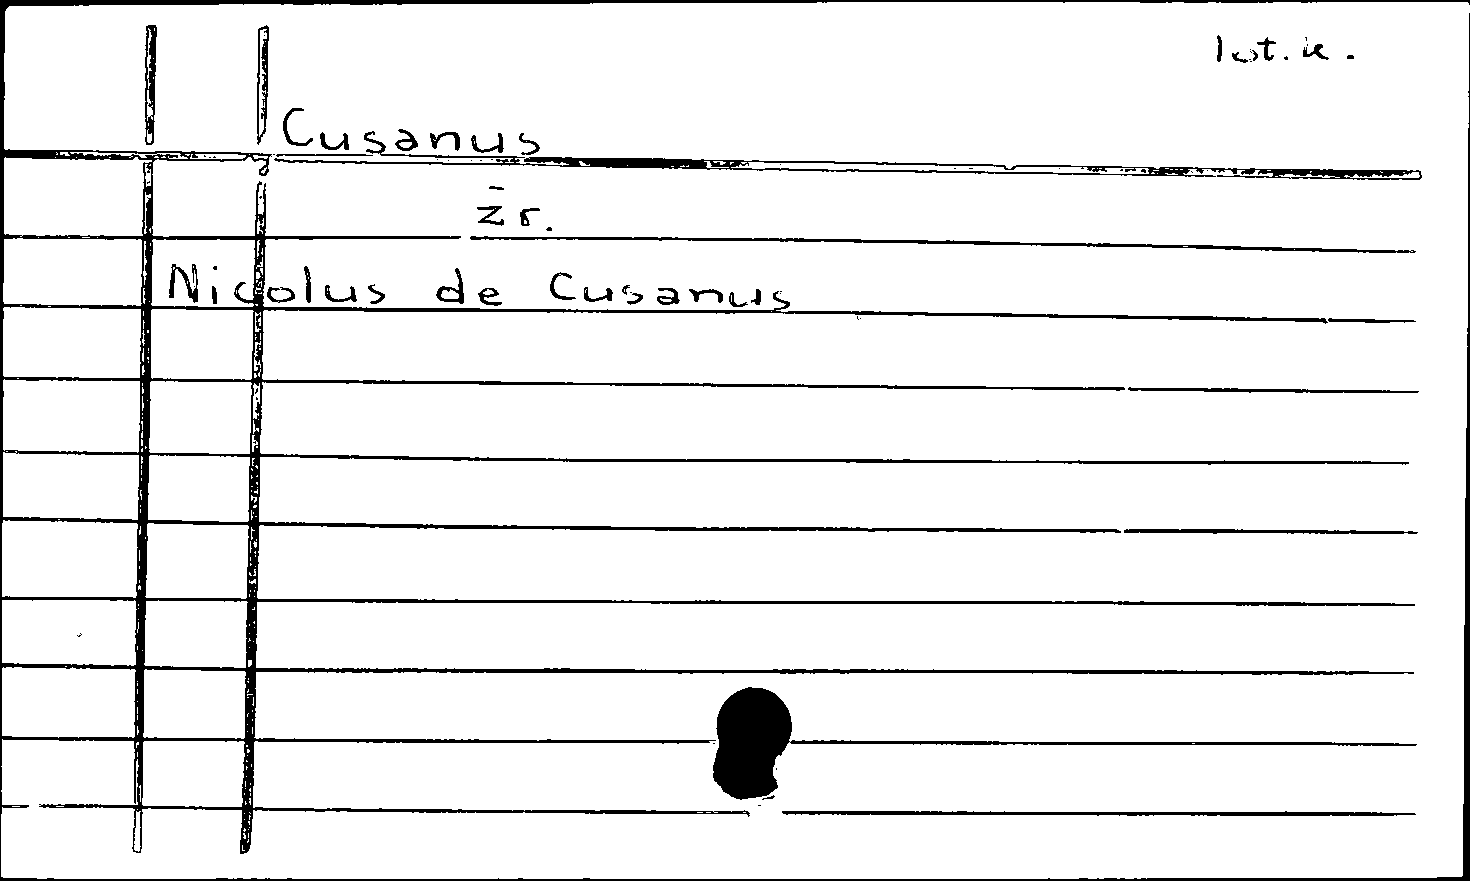 lat. k.
Cusanus
z̄ r.
Nicolus de Cusanus